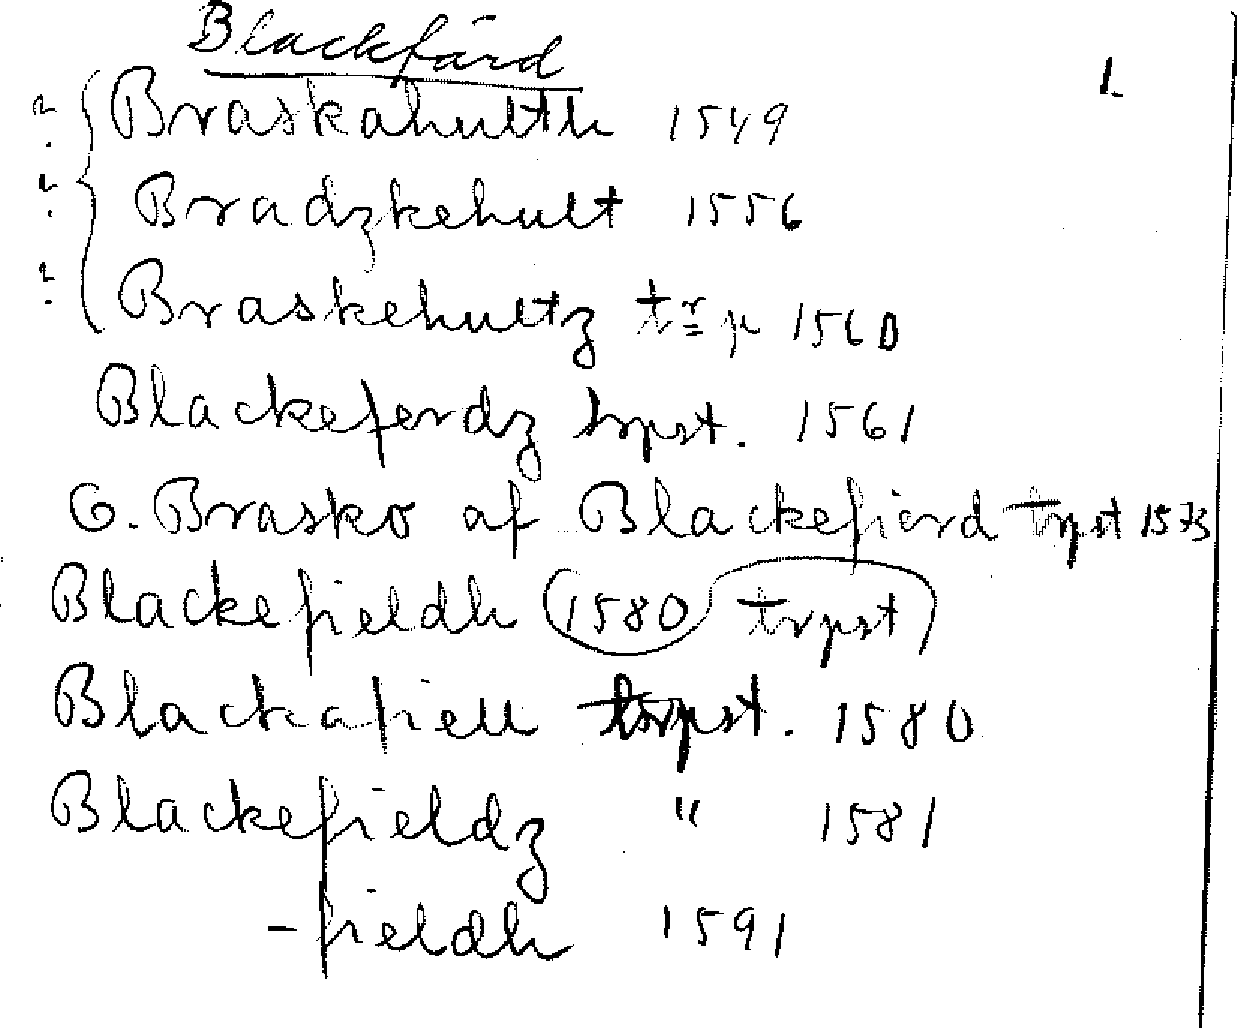 Blackfärd
1.
? { Braskahulth 1549
? Bradzkehult 1556
? Braskehultz 1560
Blackeferdz trpst. 1561
G. Brasko af Blackefiärd trpst 1573
Blackefieldh (1580 trpst)
Blackafiell trpst. 1580
Blackefieldz " 1581
-fieldh 1591